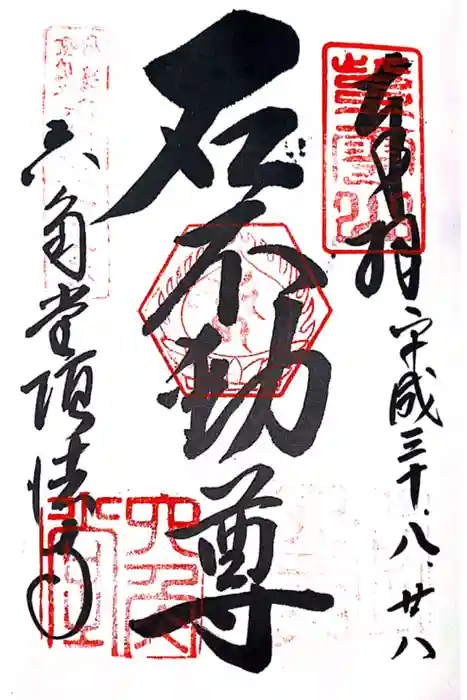 奉拝
平成三十、八、廿八
石不動尊
六角堂頂法寺